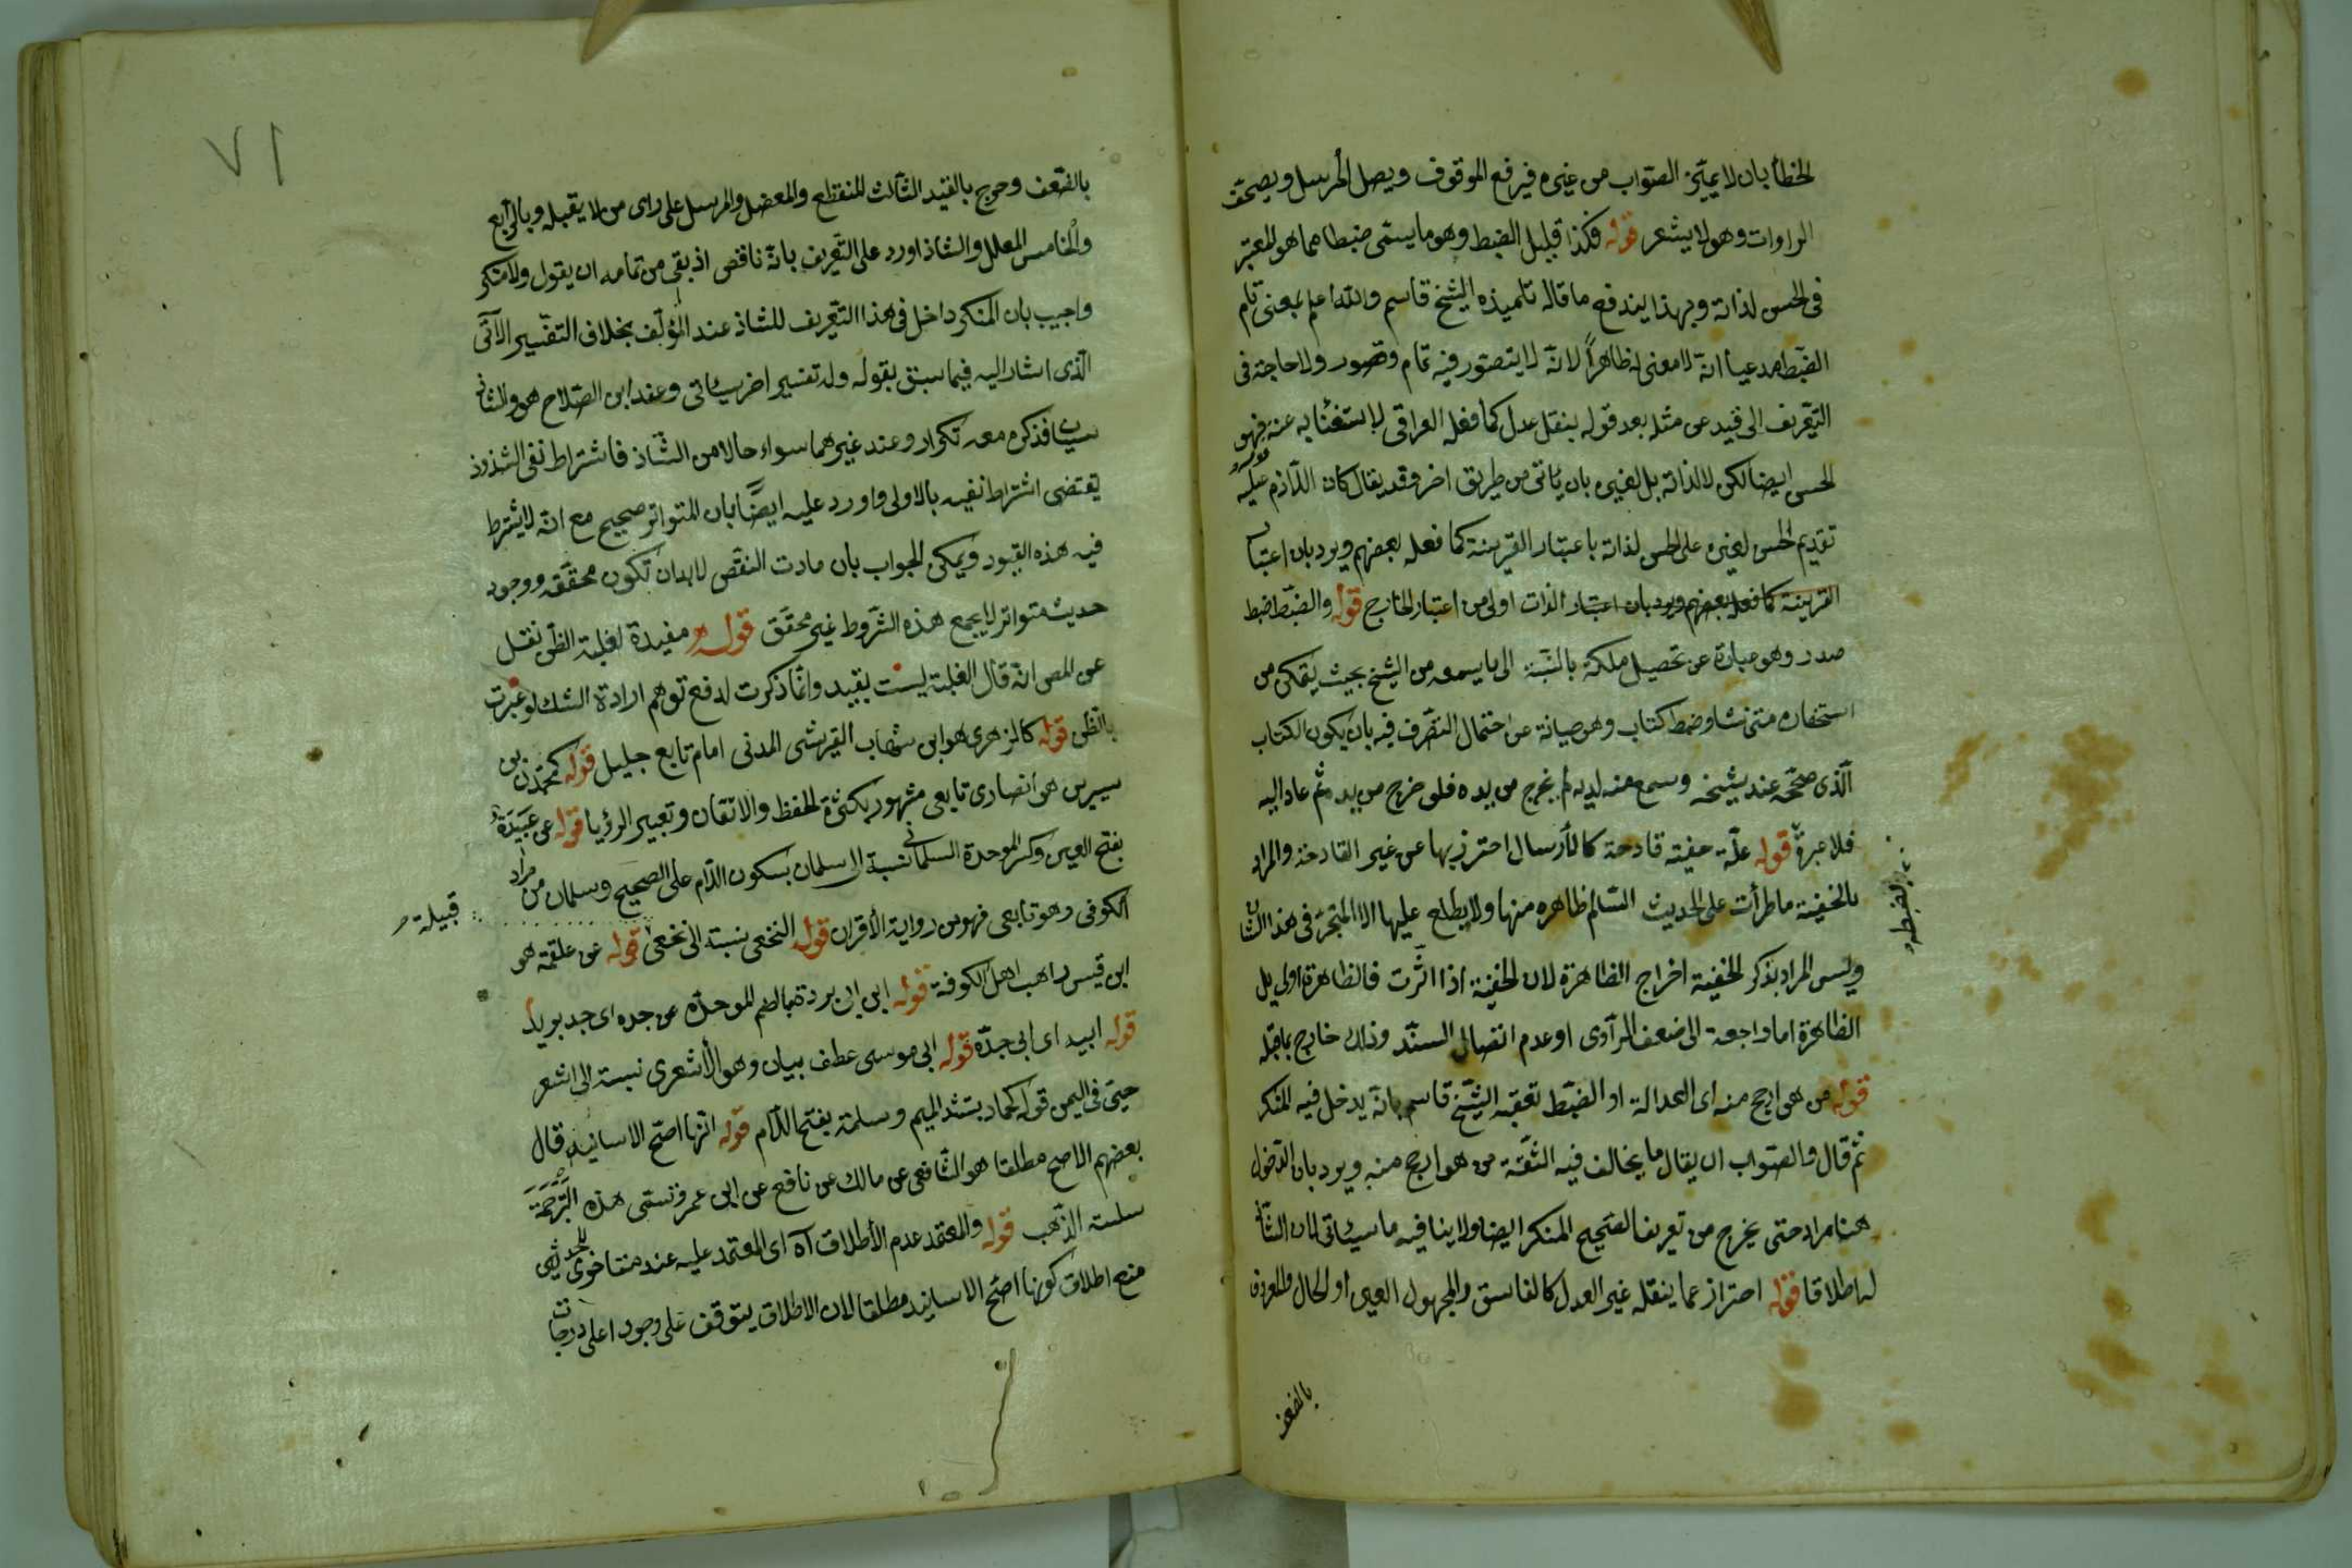 الخطأ بان لا يميّز الصّواب من غيره فيرفع الموقوف ويصل المرسل ويصحّف
الراوات وهو لا يشعر قوله فكذا قليل الضبط وهو ما يسمّى ضبطا مما هو المعتبر
فى الحسن لذاته وبهذا يندفع ما قاله تلميذه الشيخ قاسم والله اعلم بمعنى تام
الضّبط مدعيا انّه لا معنى له ظاهراً لانّه لا يتصوّر فيه تمام وقصور ولا حاجة فى
التّعريف الى قيد عن مثله بعد قوله بنقل عدل كما فعله العراقى لاستغنائه عنه فهو
الحسن ايضا لكن لا لذاته بل لغيره بان يأتى من طريق اخر وقد يقال كان اللّازم عليه
تقديم الحسن لغيره على الحسن لذاته باعتبار القرينة كما فعله بعضهم ويرد بان اعتبار
القرينة كما فعله بعضهم ويرد بان اعتبار الذات اولى من اعتبار الخارج قوله والضّبط ضبط
صدر وهو عبارة عن تحصيل ملكة بالنسبة الى ما يسمعه من الشيخ بحيث يتمكن من
استحضاره متى شاء وضبط كتاب وهو صيانة عن احتمال التصّرف فيه بان يكون الكتاب
الّذى صحّحه عند شيخه وسمع منه لديه لم يخرج من يده فلو خرج من يده ثم عاد اليه
فلا عبرة قوله علّة خفيّة قادحة كالأرسال احترز بها عن غير القادحة والمراد
بالخفيّة ما طرأت على الحديث السّالم ظاهره منها ولا يطلع عليها الا المتبحّر فى هذا الشان
وليس المراد بذكر الخفية اخراج الظاهرة لان الخفيّة اذا اثّرت فالظاهرة اولى بل
الظاهرة اما راجعة الى ضعف الرّاوى او عدم اتصال السنّد وذلك خارج بما قبله
قوله من هو ارجح منه اى العدالة او الضبّط تعقبه الشّيخ قاسم بانّه يدخل فيه المنكر
ثم قال والصّواب ان يقال ما يخالف فيه الثّقة من هو ارجح منه ويرد بان الدّخول
هنا مراد حتى يخرج من تعريف الصّحيح المنكر ايضا ولا ينافيه ما سيأتى لان الشاذ
له اطلاقا قوله احتراز عما ينقله غير العدل كالفاسق والمجهول العين او الحال والمعروف
بالضعف
٧١
بالضّعف وخرج بالقيّد الثّالث المنقطع والمعضل والمرسل على راى من لا يقبله وبالرّابع
والخامس المعلل والشاذ اورد على التّعريف بانّه ناقص اذ بقى من تمامه ان يقول ولا منكر
واجيب بان المنكر داخل فى هذا التّعريف للشاذ عند المؤلّف بخلاف التفّسير الآتى
الّذى اشار اليه فيما سبق بقوله وله تفسير اخر سيأتى وعند ابن الصّلاح هو والشاذ
سيان فذكره معه تكرار وعند غيرهما سواء حالا من الشّاذ فاشتراط نفى الشذوذ
يقتضى اشتراط نفيه بالاولى واورد عليه ايضا بان المتواتر صحيح مع انّه لا يشترط
فيه هذه القيود ويمكن الجواب بان مادت النقّض لا بد ان تكون محقّقه ووجود
حديث متواتر لا يجمع هذه الشّروط غير محقّق قوله مفيدة لغلبة الظّن نقل
عن المص انّه قال الغلبة ليست بقيد وانّما ذكرت لدفع توهم ارادة الشك لو عبرت
بالظن قوله كالزهرى هو ابن شهاب القرشى المدنى امام تابع جليل قوله كمحمّد بن
سيرين هو انصارى تابعى مشهور بكثرة الحفظ والاتقان وتعبير الرؤيا قوله عن عَبيدَة
بفتح العين وكسر الموحدة السلمانى نسبة الى سلمان بسكون اللّام على الصحيح وسلمان من مراد
قبيلة
الكوفى وهو تابعى فهو من رواية الأقران قوله النخعى نسبة الى نخعى قوله عن علقمة هو
ابن قيس راهب اهل الكوفة قوله ابن ابى بردة بالضم الموحدّه عن جده اى جد بريد
قوله ابيه اى ابى جدّه قوله ابى موسى عطف بيان وهو الأشعرى نسبة الى اشعر
حىّ فى اليمن قوله كحماد بشدّ الميم وسلمة بفتح اللّام قوله انّها اصحّ الاسانيد قال
بعضهم الاصح مطلقا هو الشّافعى عن مالك عن نافع عن ابن عمر وتسمى هذه التَّرجَمَة
سلسة الذّهب قوله والمعتمد عدم الأطلاق آه اى المعتمد عليه عند متاخرى المحدثين
منع اطلاق كونها اصّح الاسانيد مطلقا لان الاطلاق يتوقف على وجود اعلى درجات